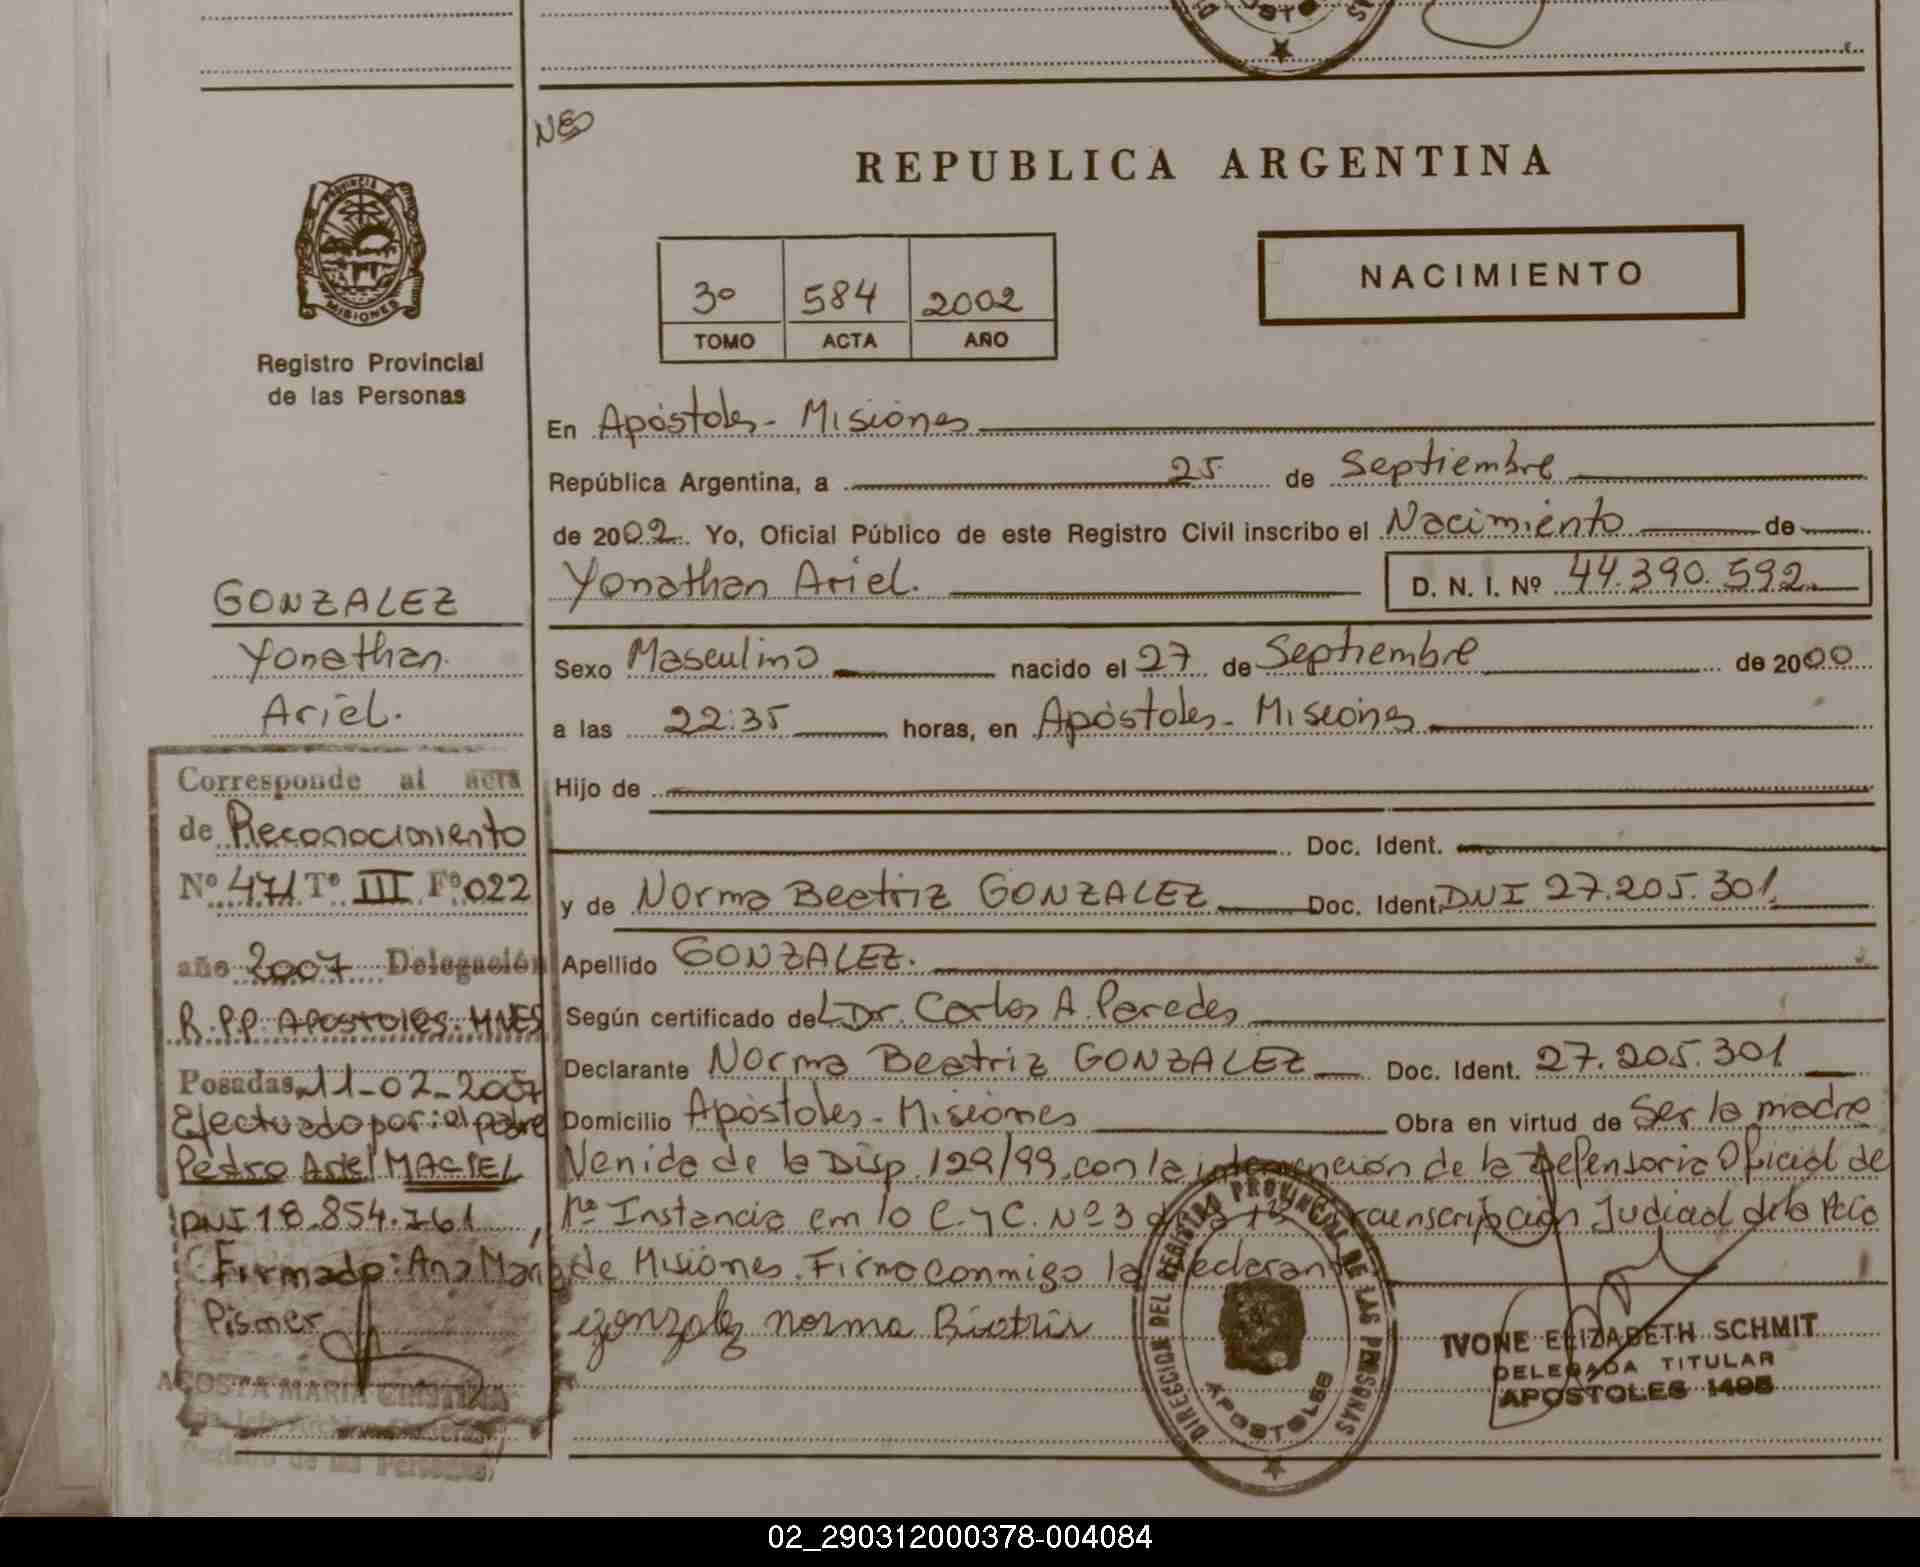 NES
PROVINCIA DE
MISIONES
Registro Provincial
de las Personas
REPUBLICA ARGENTINA
3º 584 2002
TOMO ACTA AÑO
NACIMIENTO
En Apóstoles - Misiones
República Argentina, a 25 de Septiembre
de 2002. Yo, Oficial Público de este Registro Civil inscribo el Nacimiento de
Yonathan Ariel. D. N. I. Nº 44.390.592
Sexo Masculino nacido el 27 de Septiembre de 2000
a las 22:35 horas, en Apóstoles - Misiones
Hijo de
Doc. Ident.
y de Norma Beatriz GONZALEZ Doc. Ident. DNI 27.205.301
Apellido GONZALEZ.
Según certificado del Dr. Carlos A. Paredes
Declarante Norma Beatriz GONZALEZ Doc. Ident. 27.205.301
Domicilio Apóstoles - Misiones Obra en virtud de Ser la madre
Venida de la Disp. 129/99, con la intervención de la Defensoria Oficial de
1º Instancia en lo C. y C. Nº 3 de la Circunscripción Judicial de la Pcia
de Misiones. Firma conmigo la declarante
gonzalez norma Biatris
DIRECCION DEL REGISTRO PROVINCIAL DE LAS PERSONAS
APOSTOLES
IVONE ELIZABETH SCHMIT
DELEGADA TITULAR
APOSTOLES 1495
GONZALEZ
Yonathan
Ariel.
Corresponde al acta
de Reconocimiento
Nº 471 Tº III Fº 022
año 2007 Delegación
R.P.P. APOSTOLES - MNES
Posadas, 11-02-2007
Efectuado por: el padre
Pedro Ariel MACIEL
DNI 18.854.761
Firmado: Ana Maria
Pismer
ACOSTA MARIA CRISTINA
de las Personas
02_290312000378-004084